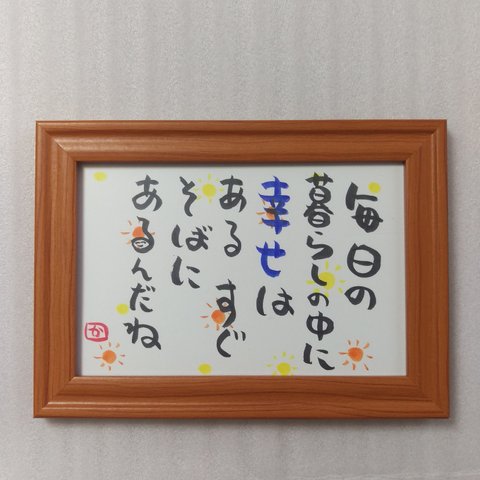 毎日の
暮らしの中に
幸せは
ある すぐ
そばに
あるんだね
か